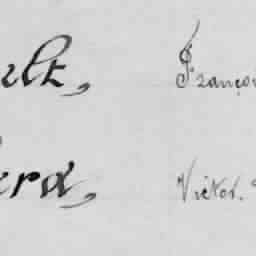 ult, Franço
ard, Victor.